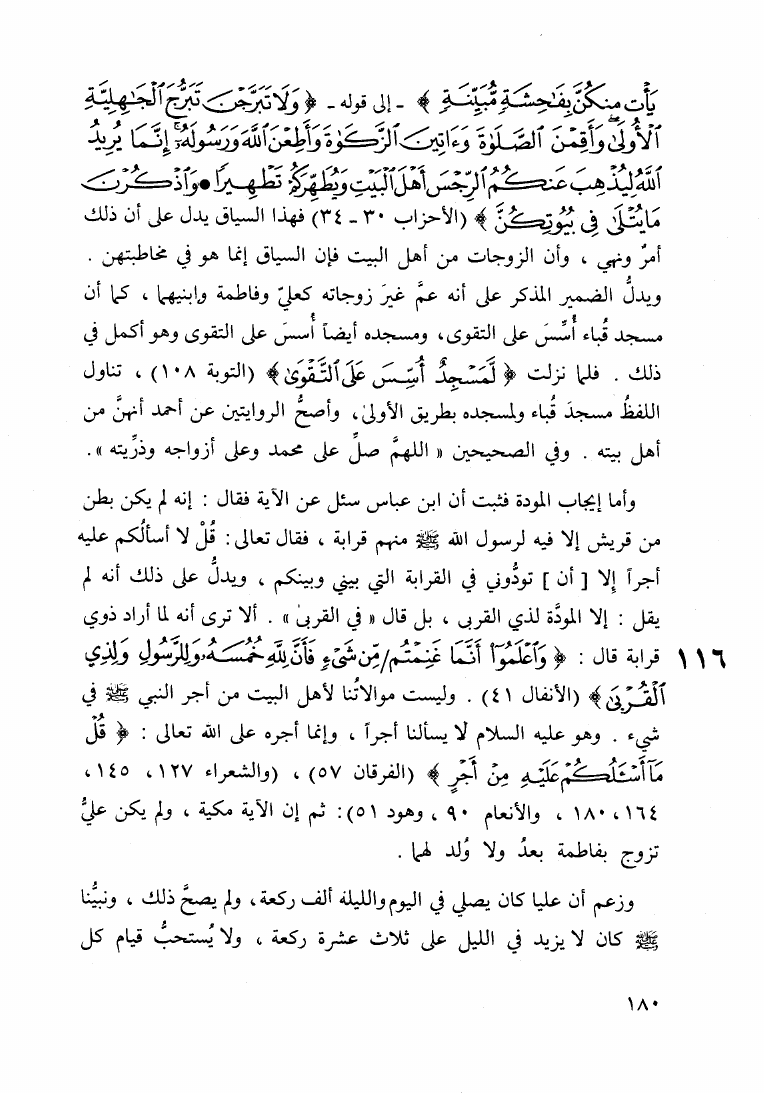 يَأْتِ مِنكُنَّ بِفَٰحِشَةٍ مُّبَيِّنَةٍ ﴾ ـ إلى قوله ـ ﴿ وَلَا تَبَرَّجْنَ تَبَرُّجَ الْجَٰهِلِيَّةِ
الْأُولَىٰ وَأَقِمْنَ الصَّلَوٰةَ وَءَاتِينَ الزَّكَوٰةَ وَأَطِعْنَ اللَّهَ وَرَسُولَهُ إِنَّمَا يُرِيدُ
اللَّهُ لِيُذْهِبَ عَنكُمُ الرِّجْسَ أَهْلَ الْبَيْتِ وَيُطَهِّرَكُمْ تَطْهِيرًا • وَاذْكُرْنَ
مَا يُتْلَىٰ فِي بُيُوتِكُنَّ ﴾ (الأحزاب ٣٠ ـ ٣٤) فهذا السياق يدل على أن ذلك
أمرٌ ونهي ، وأن الزوجات من أهل البيت فإن السياق إنما هو في مخاطبتهن .
ويدلُّ الضمير المذكر على أنه عمَّ غيرَ زوجاته كعليّ وفاطمة وابنيهما ، كما أن
مسجد قُباء أُسِّسَ على التقوى، ومسجده أيضاً أُسسَ على التقوى وهو أكمل في
ذلك . فلما نزلت ﴿ لَّمَسْجِدٌ أُسِّسَ عَلَى التَّقْوَىٰ ﴾ (التوبة ١٠٨) ، تناول
اللفظُ مسجدَ قُباء ولمسجده بطريق الأولىٰ، وأصحُّ الروايتين عن أحمد أنهنَّ من
أهل بيته . وفي الصحيحين « اللهمَّ صلِّ على محمد وعلى أزواجه وذرِّيته ».
وأما إيجاب المودة فثبت أن ابن عباس سئل عن الآية فقال : إنه لم يكن بطن
من قريش إلا فيه لرسول الله ﷺ منهم قرابة ، فقال تعالى: قُلْ لا أسألُكم عليه
أجراً إِلا [ أن ] تودُّوني في القرابة التي بيني وبينكم ، ويدلُّ على ذلك أنه لم
يقل : إلا المودَّة لذي القربى ، بل قال « في القربىٰ » . ألا ترى أنه لما أراد ذوي
١١٦ قرابة قال : ﴿ وَاعْلَمُوٓا أَنَّمَا غَنِمْتُم/ مِّن شَيْءٍ فَأَنَّ لِلَّهِ خُمُسَهُ وَلِلرَّسُولِ وَلِذِي
الْقُرْبَىٰ ﴾ (الأنفال ٤١) . وليست موالاتُنا لأهل البيت من أجر النبي ﷺ في
شيء . وهو عليه السلام لا يسألنا أجراً ، وإنما أجره على الله تعالى : ﴿ قُلْ
مَآ أَسْـَٔلُكُمْ عَلَيْهِ مِنْ أَجْرٍ ﴾ (الفرقان ٥٧) ، (والشعراء ١٢٧، ١٤٥،
١٦٤ ، ١٨٠ ، والأنعام ٩٠ ، وهود ٥١): ثم إن الآية مكية ، ولم يكن عليٌّ
تزوج بفاطمة بعدُ ولا وُلد لهما .
وزعم أن عليا كان يصلي في اليوم والليلة ألف ركعة، ولم يصحَّ ذلك ، ونبيُّنا
ﷺ كان لا يزيد في الليل على ثلاث عشرة ركعة ، ولا يُستحبُّ قيام كل
١٨٠